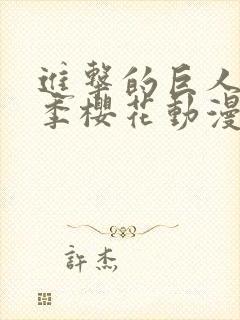 進擊的巨人
季櫻花動漫
許杰